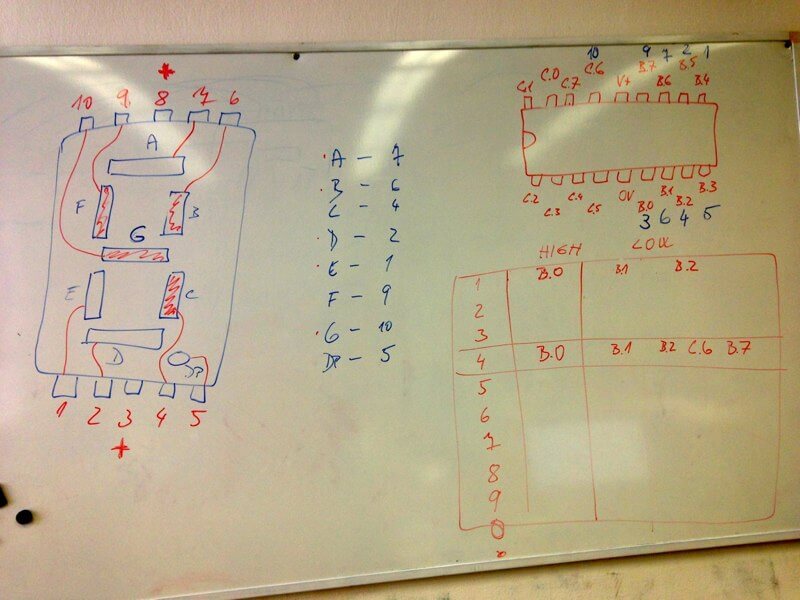 +
10 9 8 7 6
A
F B
G
E C
D DP
1 2 3 4 5
+
A - 7
B - 6
C - 4
D - 2
E - 1
F - 9
G - 10
DP - 5
10 9 7 2 1
C.1 C.0 C.7 C.6 V+ B.7 B.6 B.5 B.4
C.2 C.3 C.4 C.5 0V B.0 B.1 B.2 B.3
3 6 4 5
HIGH LOW
1 B.0 B.1 B.2
2
3
4 B.0 B.1 B.2 C.6 B.7
5
6
7
8
9
0